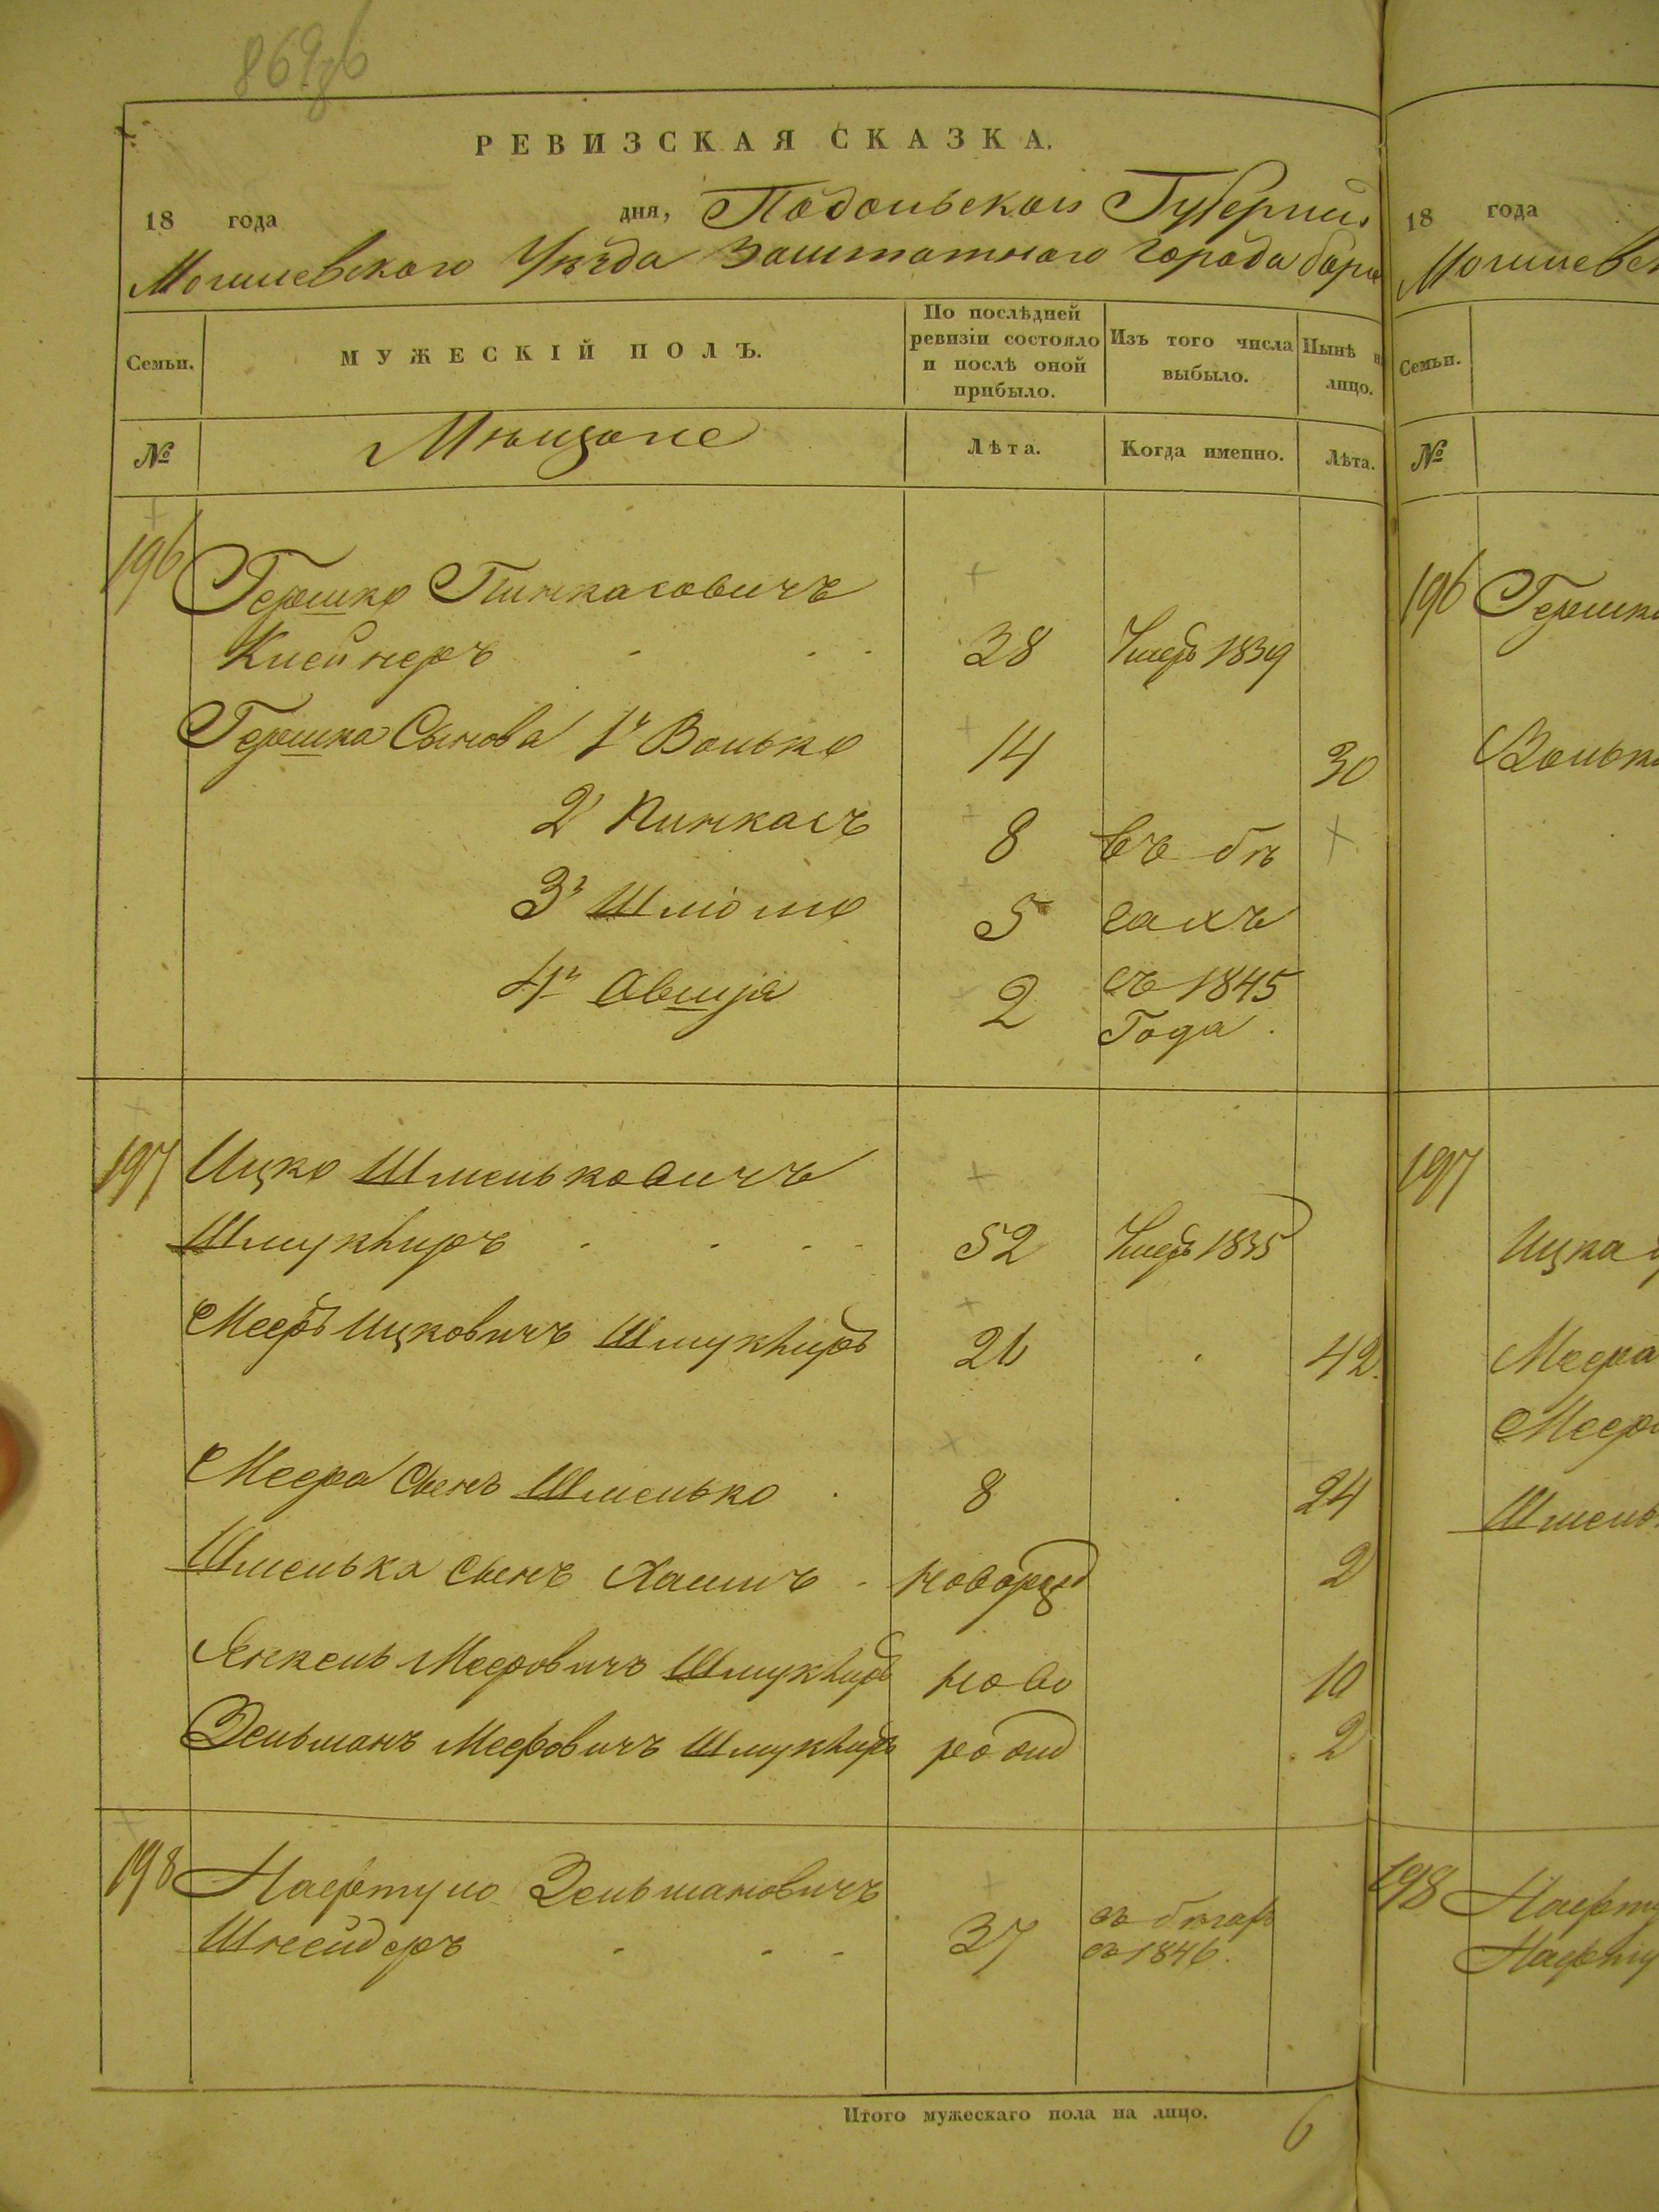 РЕВИЗСКАЯ СКАЗКА.
18 года дня, Подольской Губерніи
Могилевского Уѣзда Заштатного города Бара
Семьи.
МУЖЕСКІЙ ПОЛЪ.
По послѣдней ревизіи состояло и послѣ оной прибыло.
Изъ того числа выбыло.
Нынѣ на лицо.
№
Мѣщане
Лѣта.
Когда именно.
Лѣта.
196 Гершко Пинкасовичъ
Клейнеръ 38 Умеръ 1839
Гершка Сыновья 1й Волько 14 30
2й Пинкасъ 8 въ бѣ
3й Шліомо 5 гахъ
4й Овшія 2 съ 1845
Года.
197 Ицко Шмельковичъ
Шмуклиръ 52 Умеръ 1835
Мееръ Ицковичъ Шмуклиръ 26 42.
Меера Сынъ Шмелько 8 24
Шмелька Сынъ Хаимъ новорожд 2
Янкель Мееровичъ Шмуклиръ ново 10
Зельманъ Мееровичъ Шмуклиръ рожд 2
198 Нафтуло Зельмановичъ
Шнейдеръ 37 въ бѣгахъ
съ 1846.
Итого мужескаго пола на лицо. 6
18 года
Семьи.
№
196
197
Ицка
Меера
198